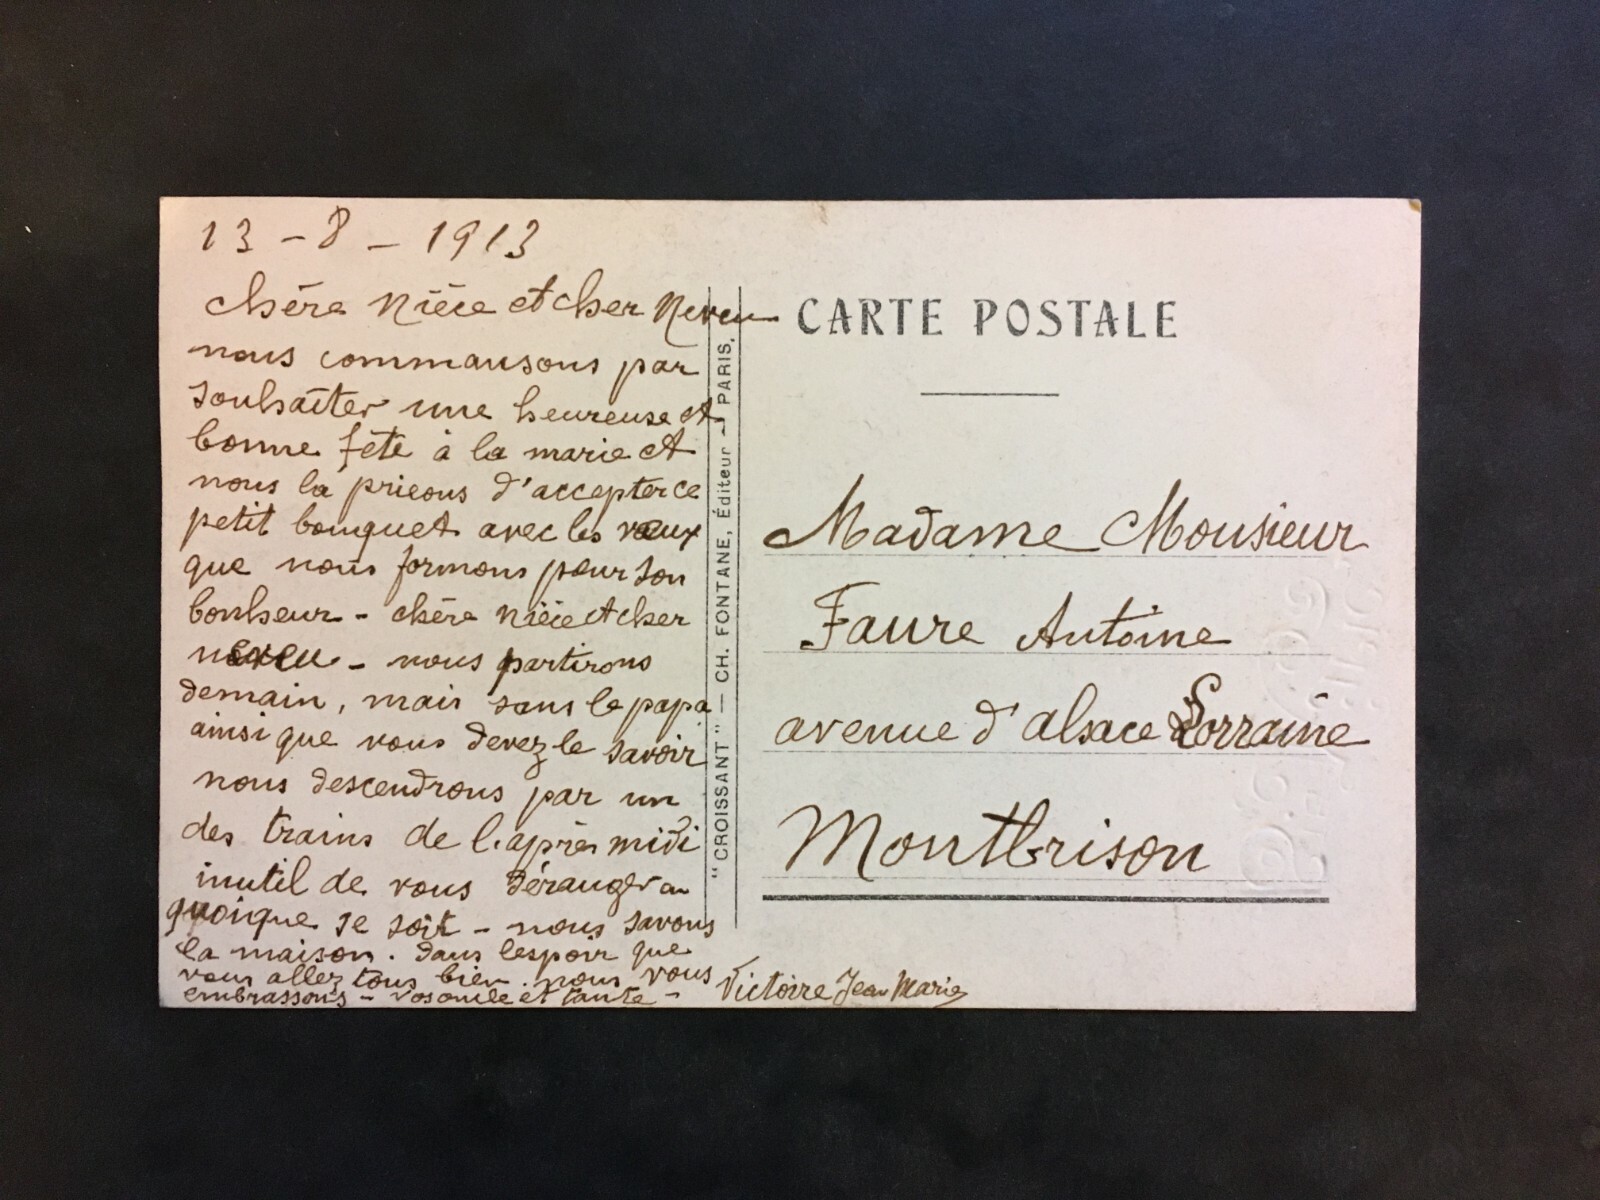 13 - 8 - 1913
chère Nièce et cher Neveu
nous commansons par
souhaiter une heureuse et
bonne fête à la marie et
nous la prieons d'accepter ce
petit bouquet avec les vœux
que nous formons pour son
bonheur - chère Nièce et cher
neveu - nous partirons
demain, mais sans le papa
ainsi que vous devez le savoir
nous descendrons par un
des trains de l'après midi
inutil de vous déranger en
quoique se soit - nous savons
la maison. dans lespoir que
vous allez tous bien. nous vous
embrassons - vos oncle et tante -
Victoire Jean Marie
"CROISSANT" — CH. FONTANE, Éditeur — PARIS,
CARTE POSTALE
Madame Monsieur
Faure Antoine
avenue d'alsace Lorraine
Montbrison